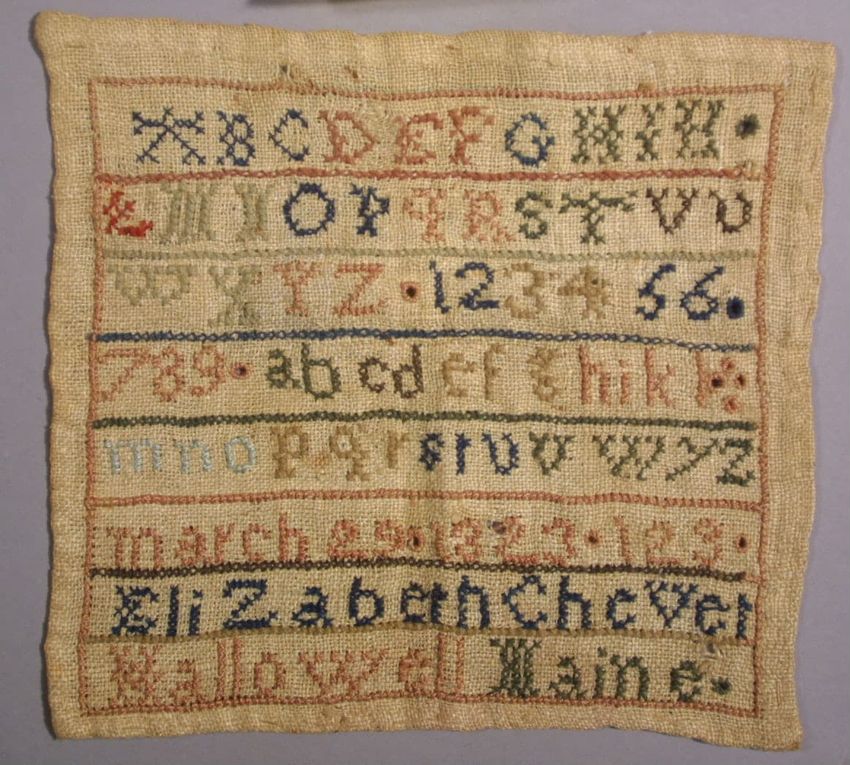 A B C D E F G H I K ·
L M N O P q R S T V U
W X Y Z · 1 2 3 4 5 6 .
7 8 9 · a b c d e f g h i k l
m n o p q r s t u v w y z
march 29 · 1823 · 123 ·
EliZabeth Chever
Hallowell Maine ·